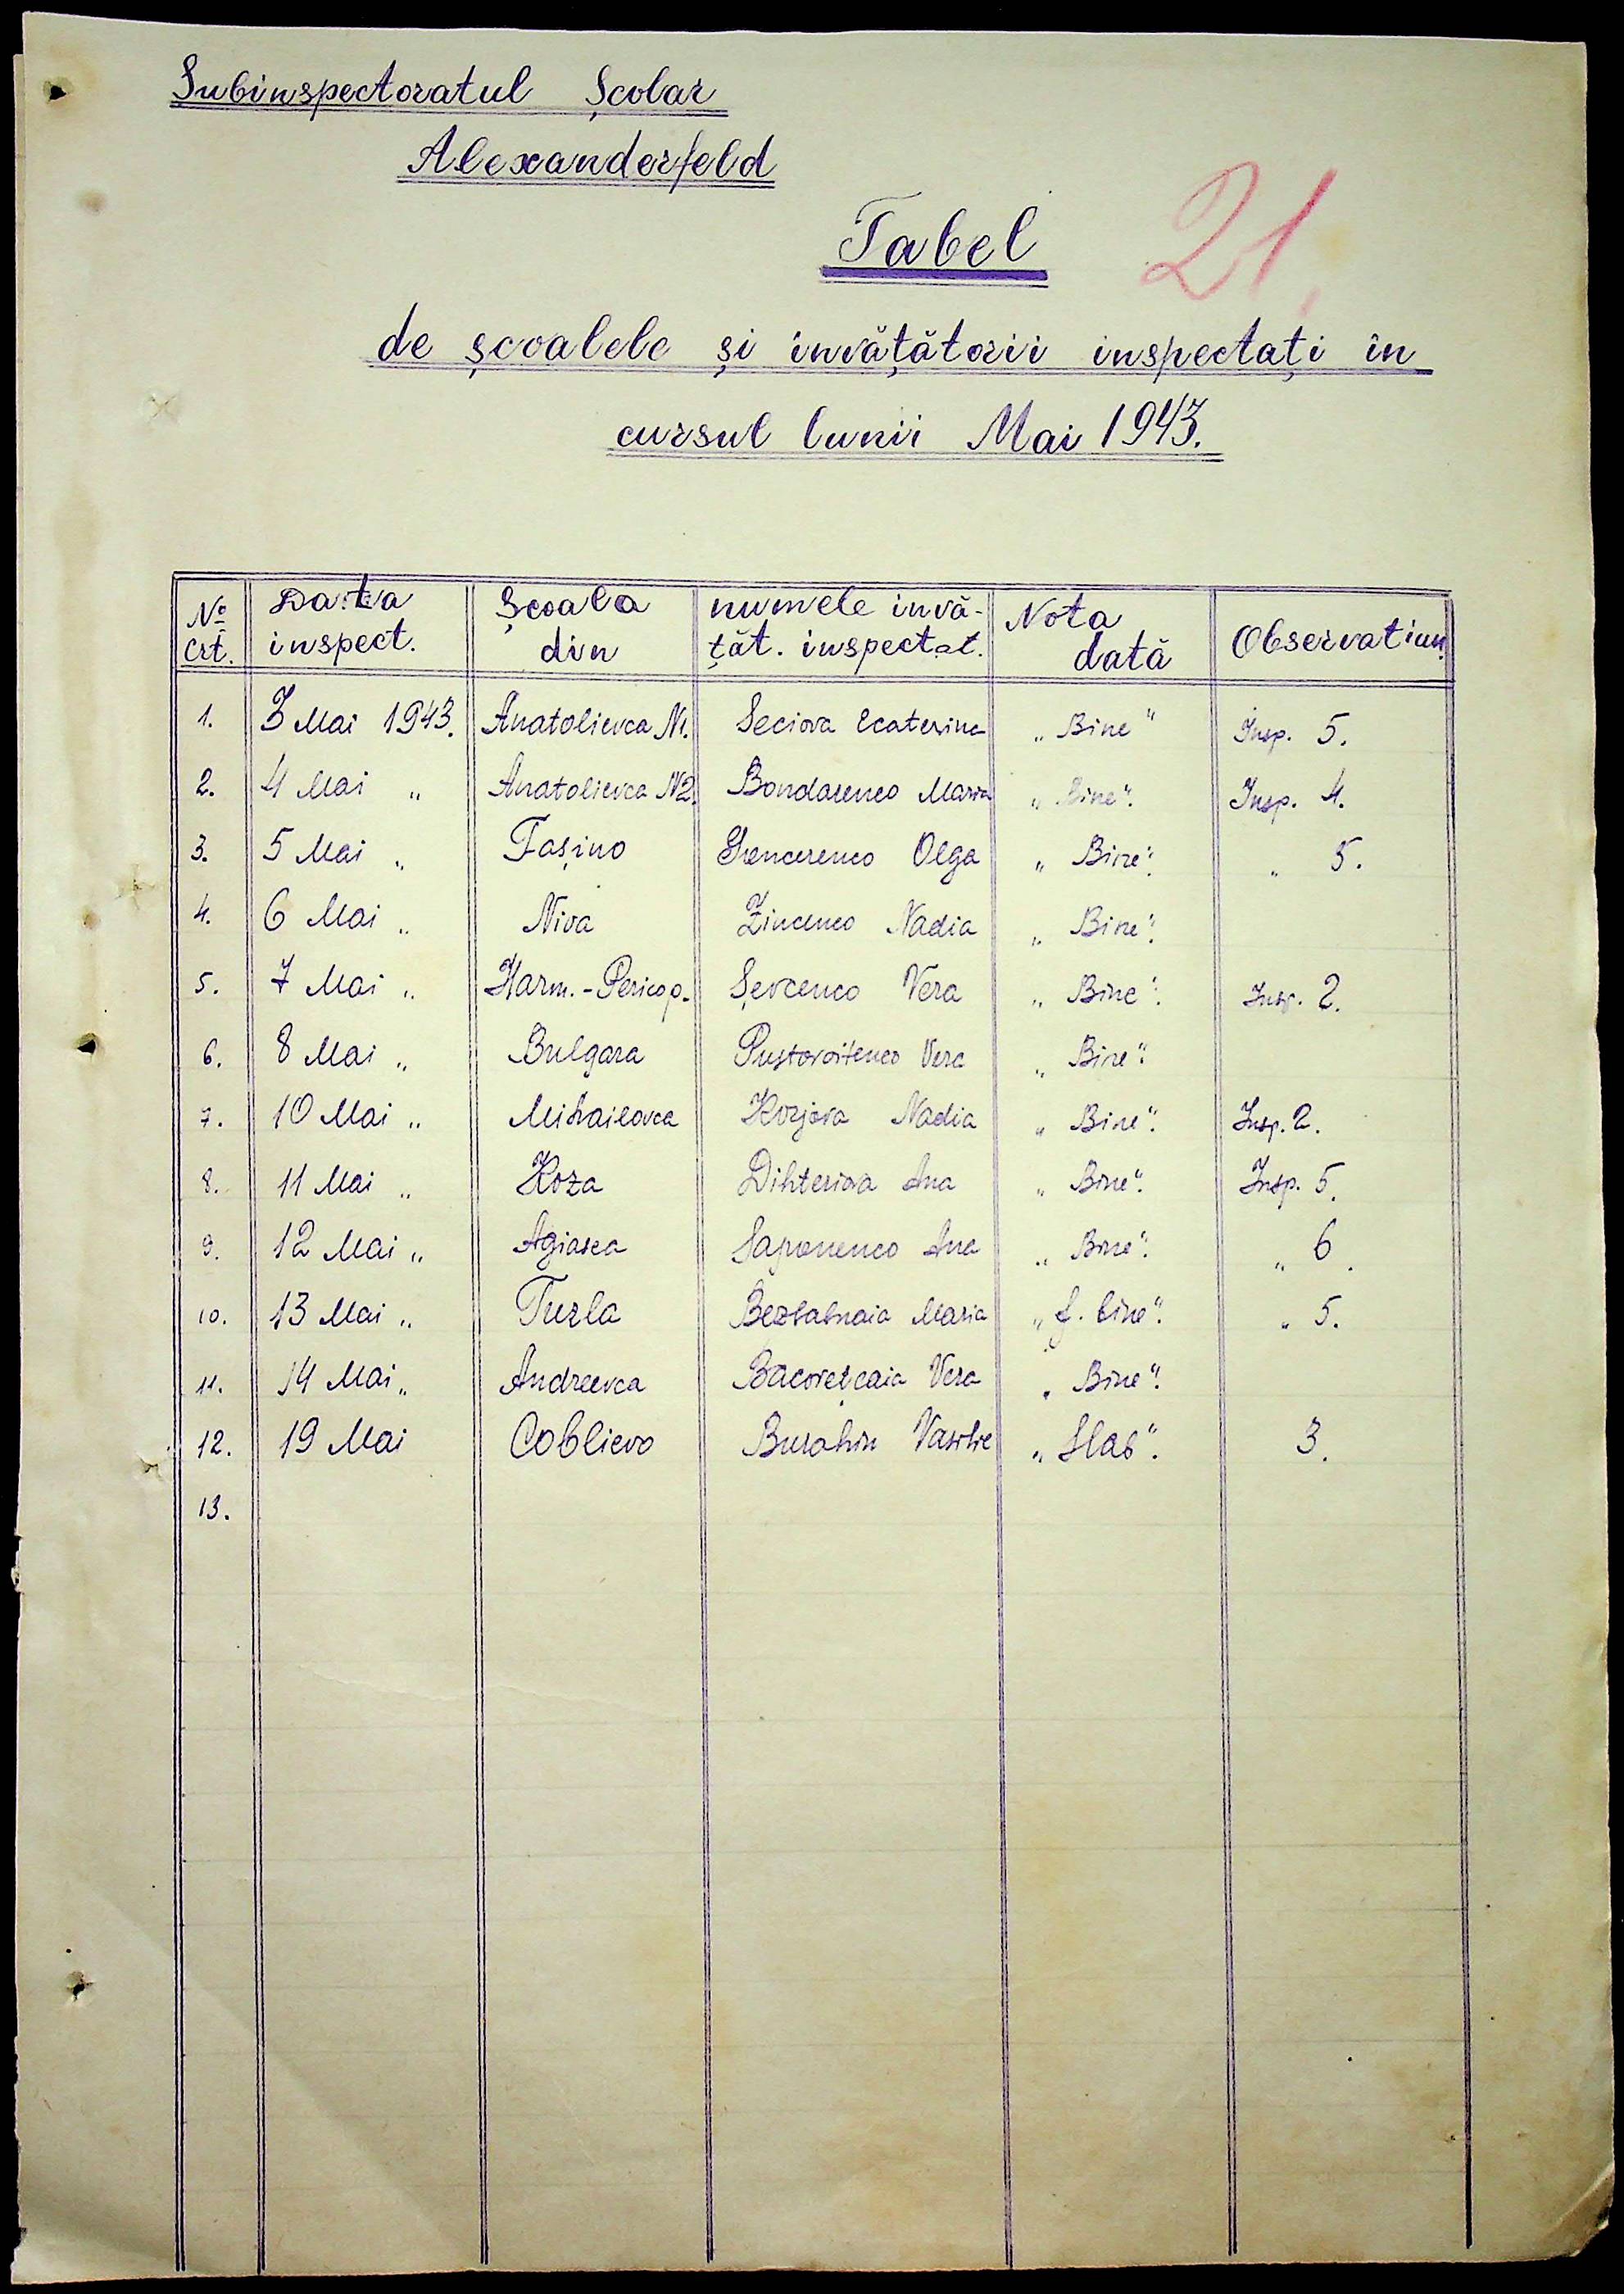 Subinspectoratul Școlar
Alexanderfeld
Tabel
21.
de școalele și învățătorii inspectați în
cursul lunii Mai 1943.
No crt. Data inspect. Școala din numele învă-țăt. inspectat. Nota dată Observatiun.
1. 3 Mai 1943. Anatolievca N1. Seciova Ecaterina „Bine" Insp. 5.
2. 4 Mai „ Anatolievca N2. Bondarenco Maria „Bine". Insp. 4.
3. 5 Mai „ Fașino Olga „Bine". „ 5.
4. 6 Mai „ Niva Zincenco Nadia „Bine".
5. 7 Mai „ Karm.-Pericop. Șevcenco Vera „Bine". Insp. 2.
6. 8 Mai „ Bulgara Pustovoitenco Vera „Bine".
7. 10 Mai „ Mihailovca Korjova Nadia „Bine". Insp. 2.
8. 11 Mai „ Koza Dihteriova Ana „Bine". Insp. 5.
9. 12 Mai „ Agiasca Saponenco Ana „Bine". „ 6.
10. 13 Mai „ Tuzla Bezbabnaia Maria „f. bine". „ 5.
11. 14 Mai „ Andreevca Vera „Bine".
12. 19 Mai Coblievo Burahin Vasilie „Slab". 3.
13.